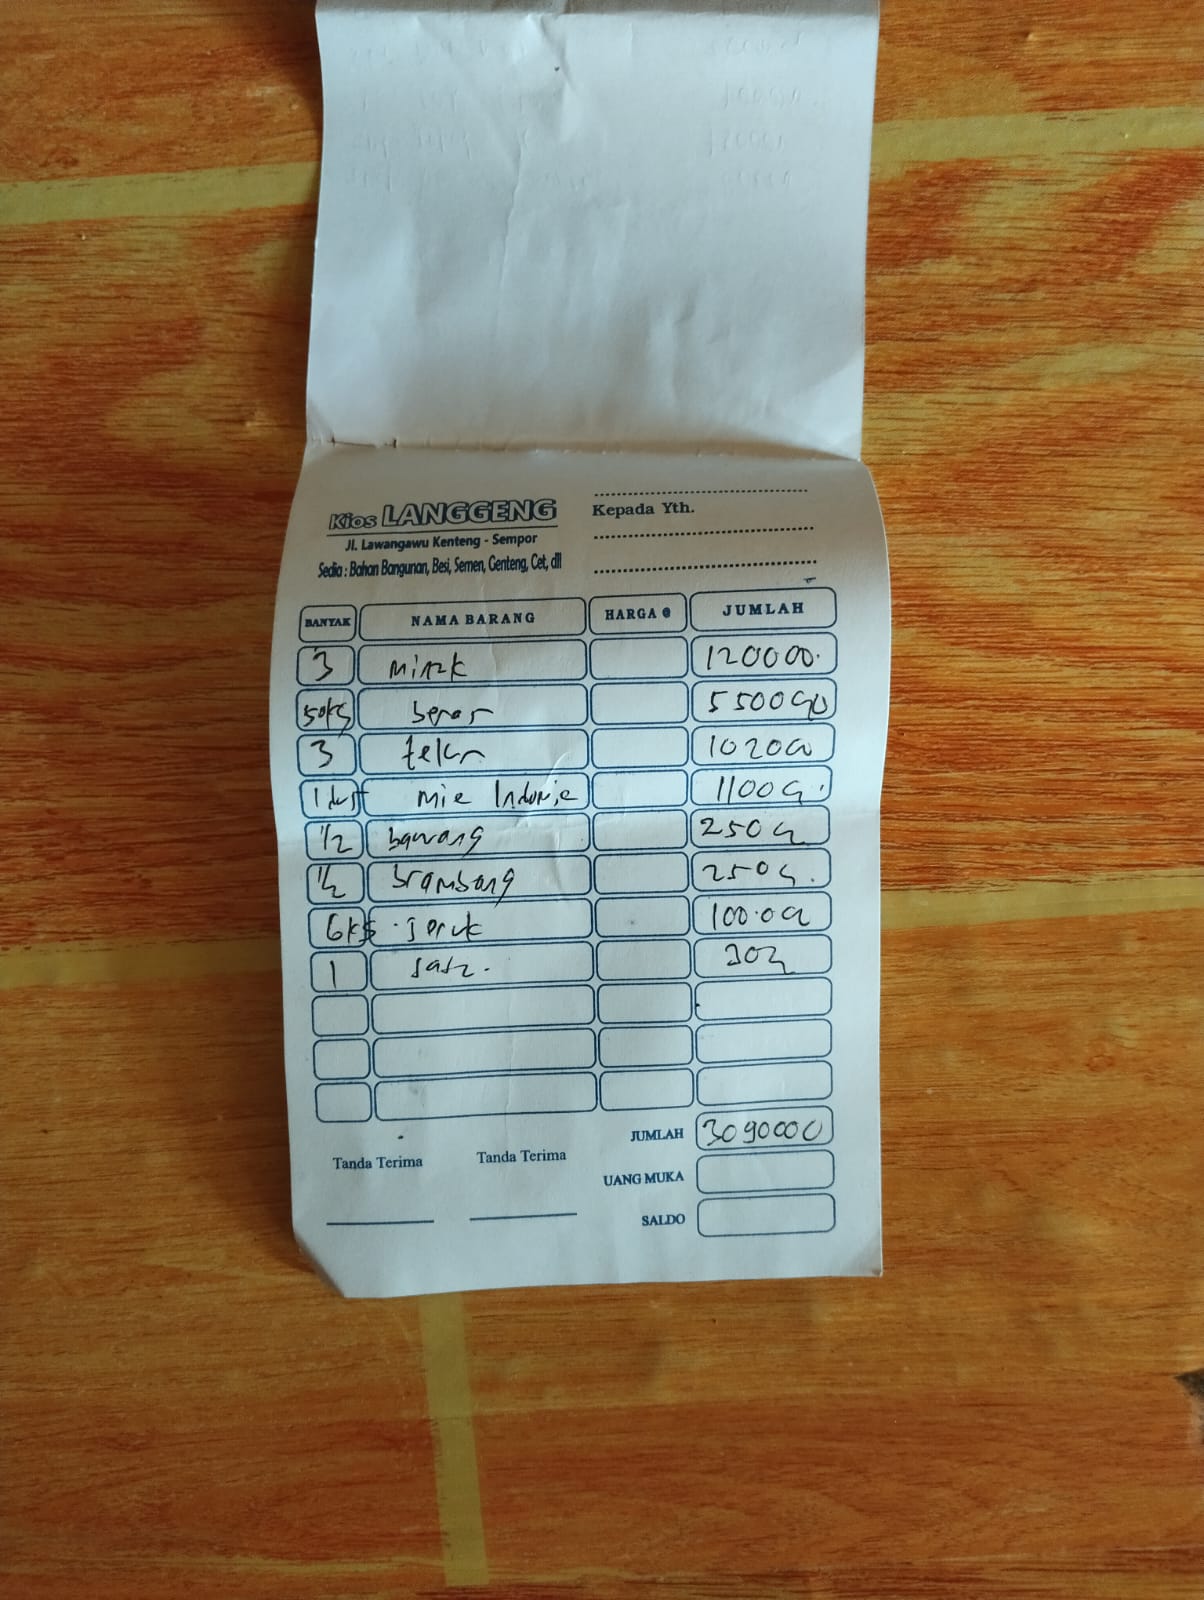 Kios LANGGENG
Jl. Lawangawu Kenteng - Sempor
Sedia : Bahan Bangunan, Besi, Semen, Genteng, Cet, dll
Kepada Yth.
BANYAK NAMA BARANG HARGA @ JUMLAH
3 120000.
50kg beras 550000
3 telur 102000
1 dus Mie Indomie
1/2 bawang
1/2 brambang
6kg jeruk
1
JUMLAH 3090000
Tanda Terima Tanda Terima
UANG MUKA
SALDO